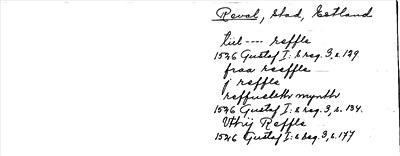 Reval, stad, Estland
till ---- reffle
1526 Gustaf I:s reg. 3, s. 129.
fraa reeffle
j reffle
reffuelsth mynthr
1526 Gustaf I:s reg. 3, s. 134.
Vttij Reffle
1526 Gustaf I:s reg. 3, s. 177